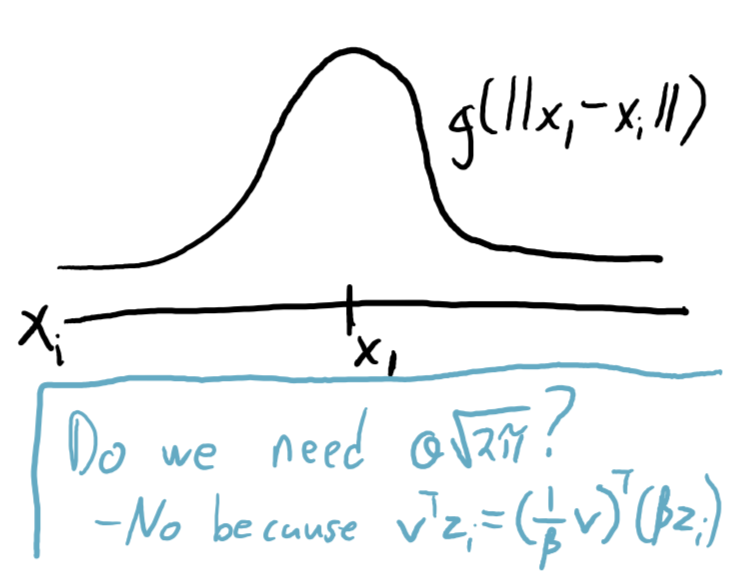 g(||x₁-xᵢ||)
xᵢ
x₁
Do we need σ√2π?
-No because vᵀzᵢ=(1/β v)ᵀ(βzᵢ)